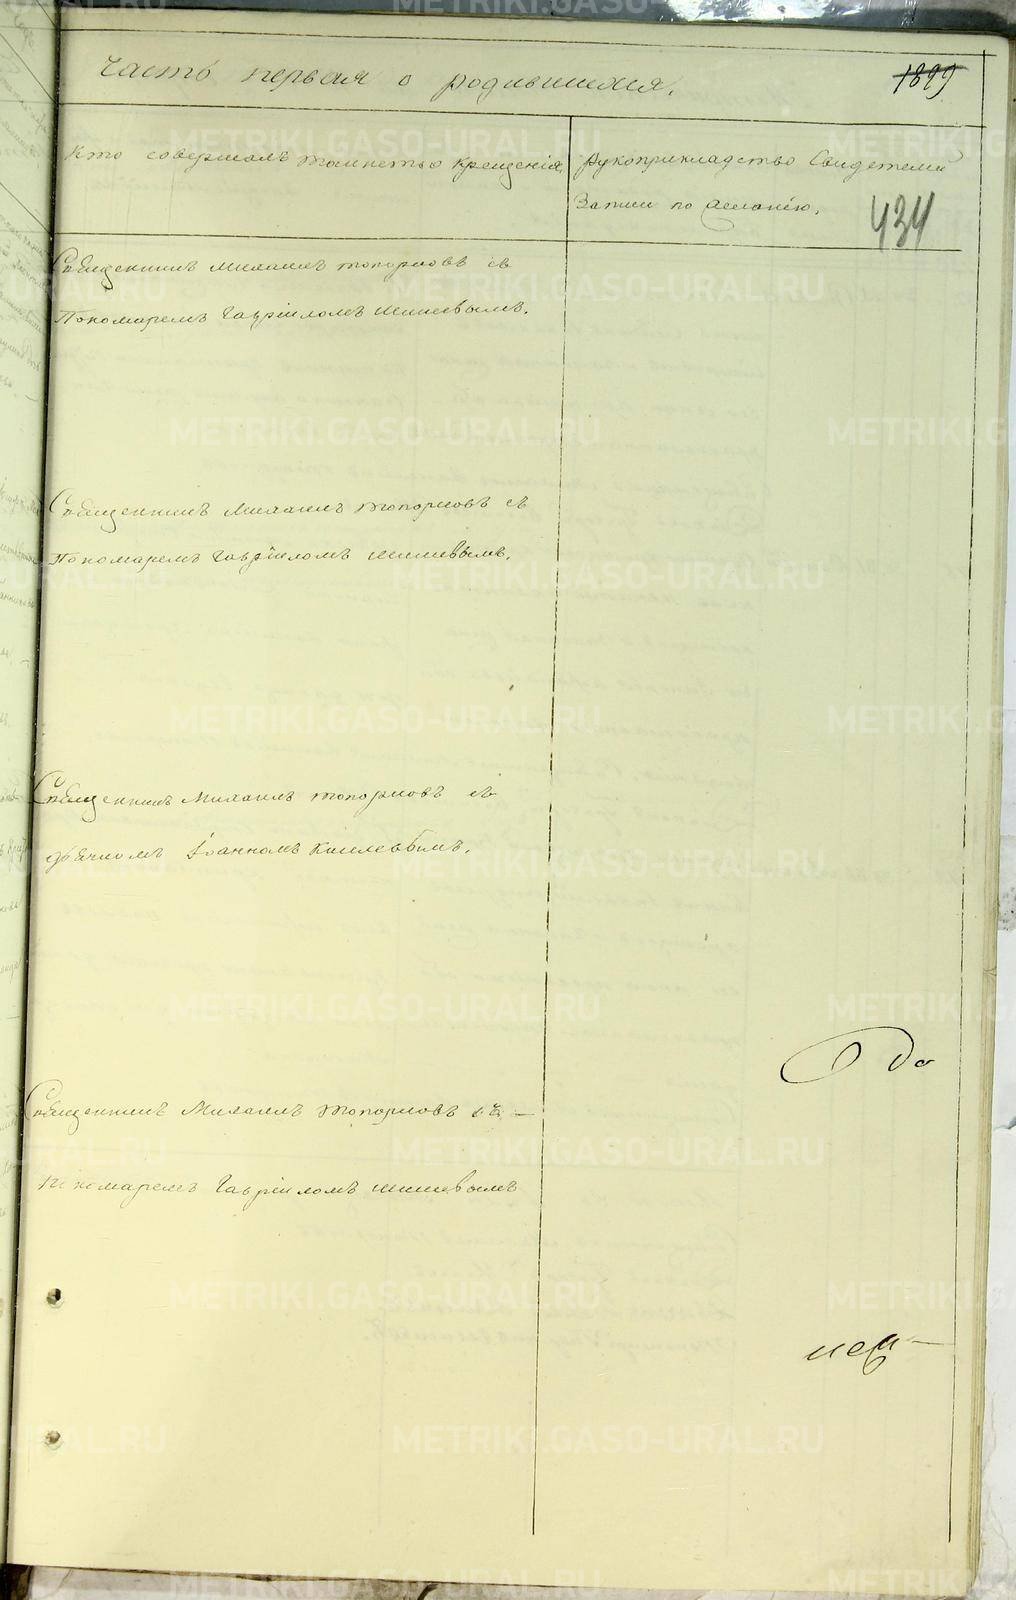 Часть первая о родившихся.
1899
Кто совершалъ таинство крещенія.
Рукоприкладство свидетелей
записи по желанію.
434
Священникъ Михаилъ Топорковъ съ
Пономаремъ Гавріиломъ Шишевымъ.
Священникъ Михаилъ Топорковъ съ
Пономаремъ Гавріиломъ Шишевымъ.
Священникъ Михаилъ Топорковъ съ
дьячкомъ Іоанномъ Киселевымъ.
Священникъ Михаилъ Топорковъ съ —
Пономаремъ Гавріиломъ Шишевымъ
METRIKI.GASO-URAL.RU